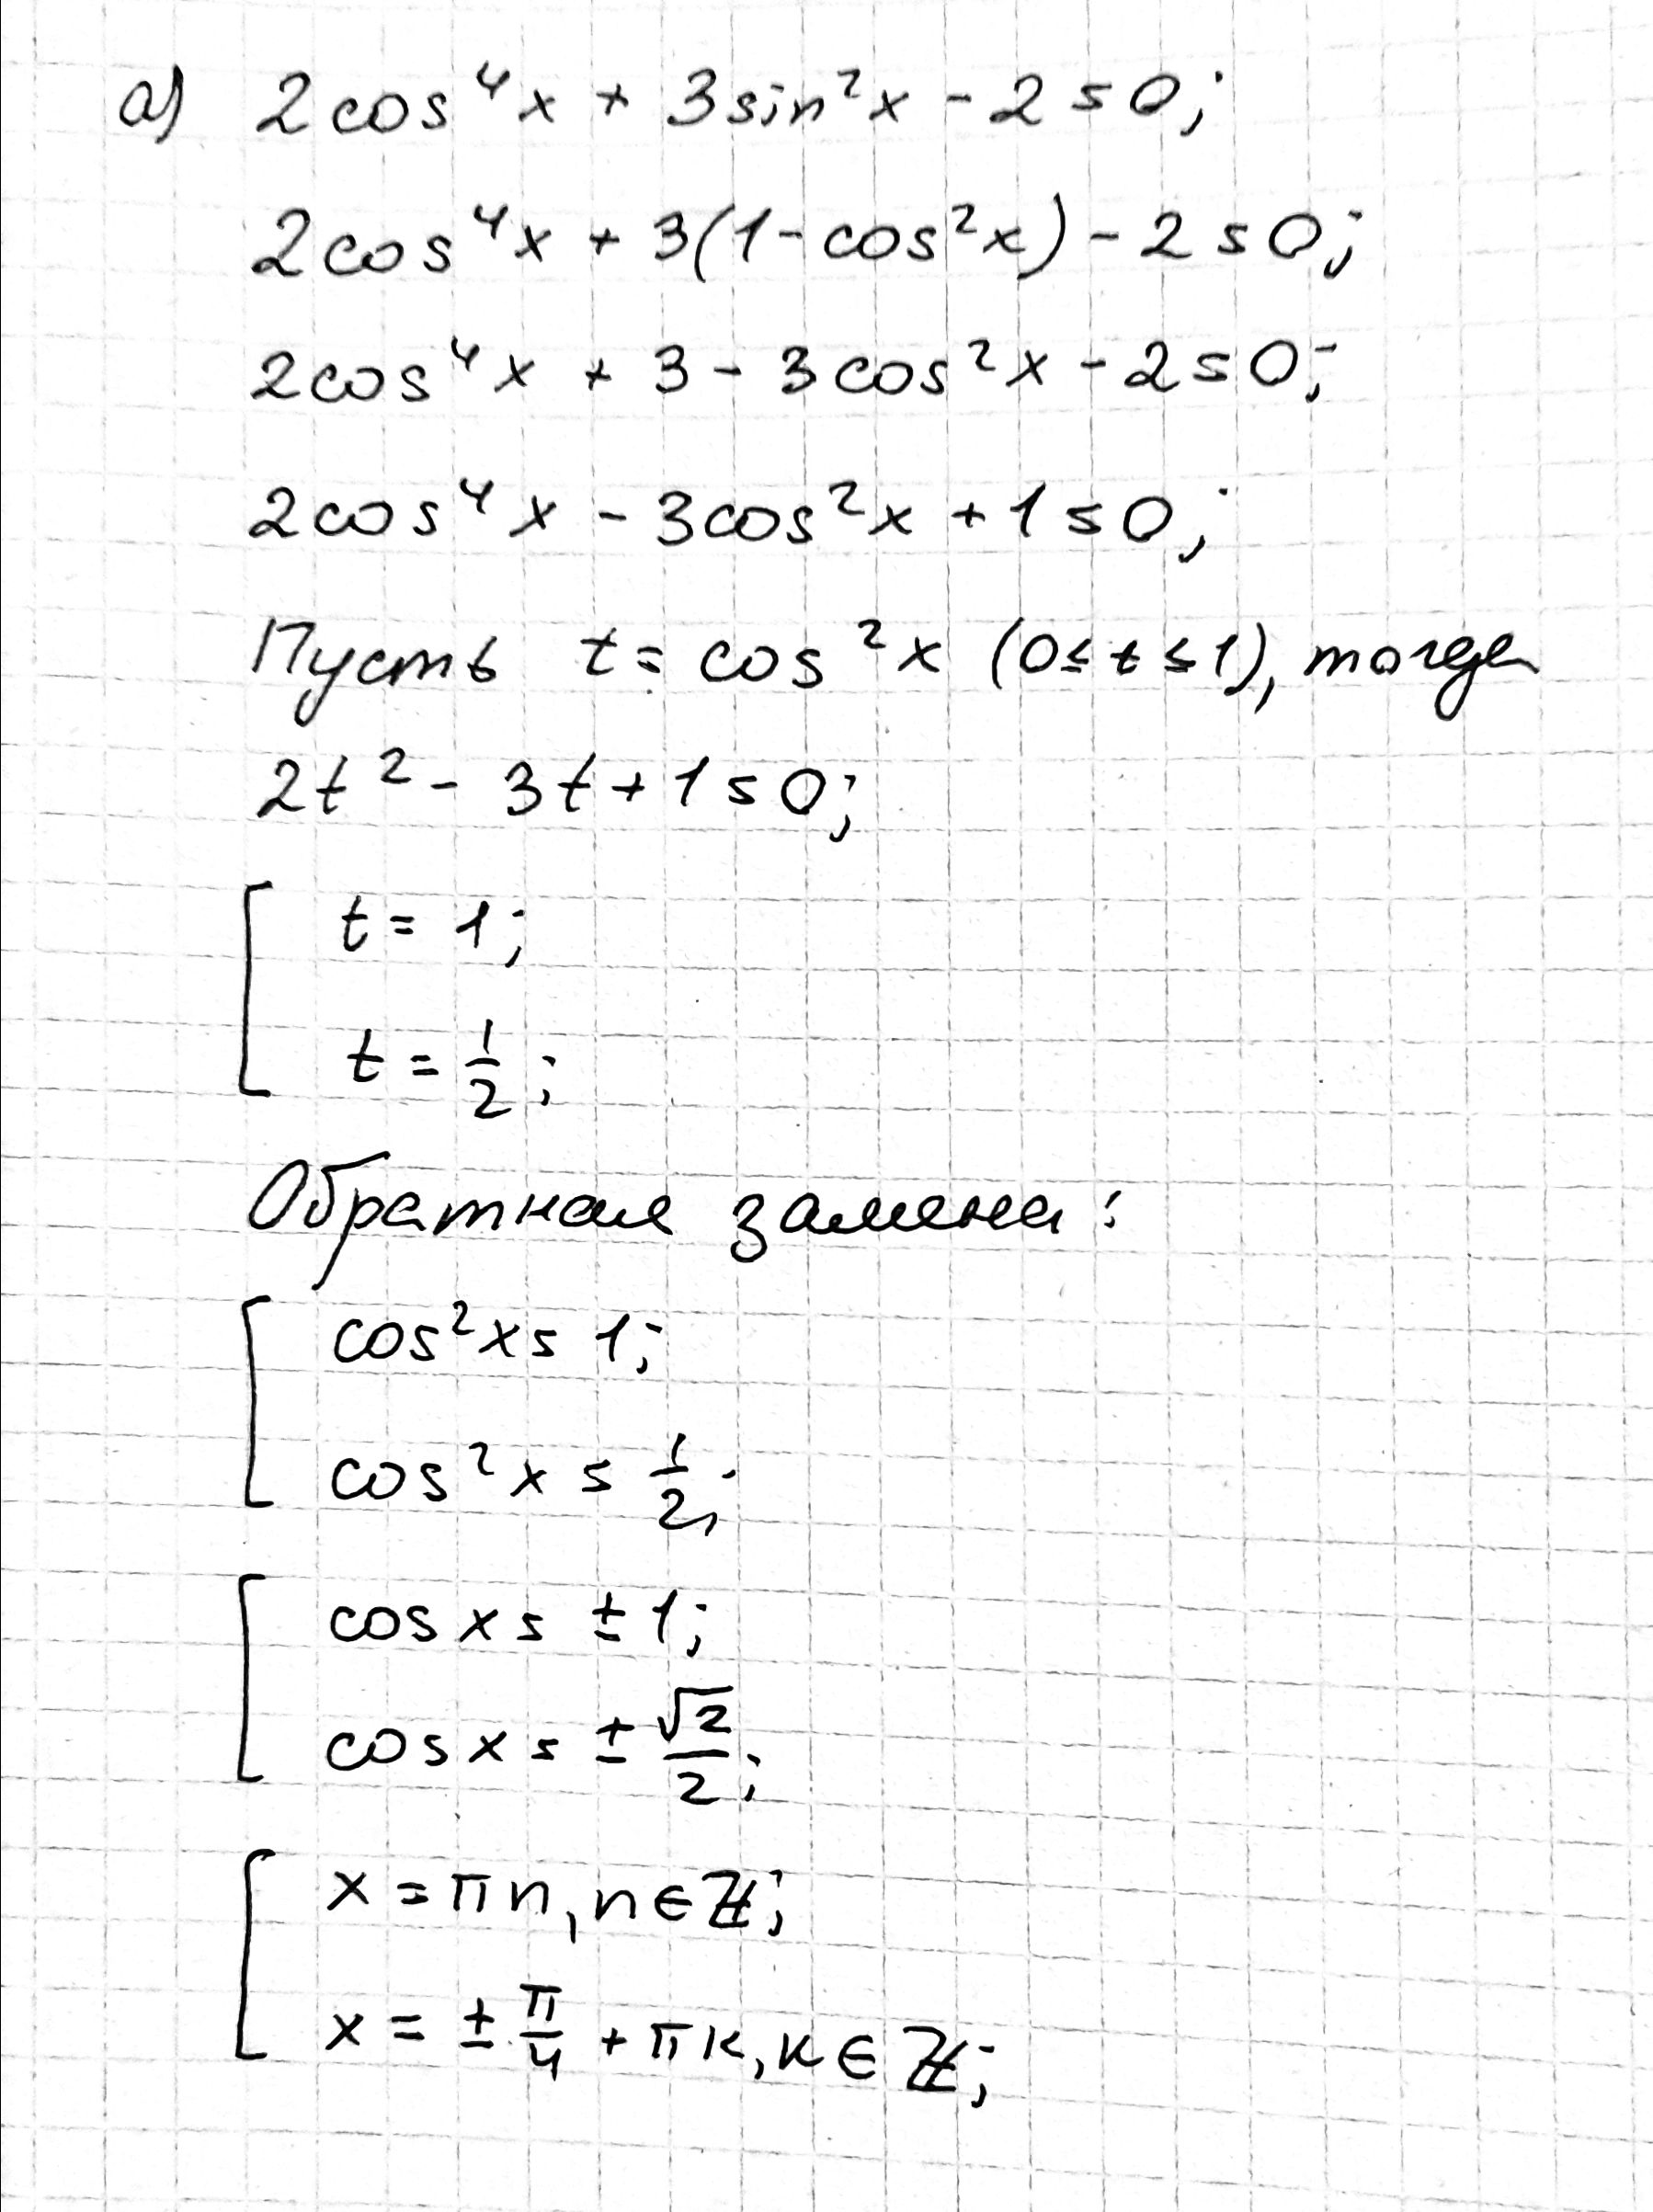 а) 2cos⁴x + 3sin²x - 2 = 0;
2cos⁴x + 3(1 - cos²x) - 2 = 0;
2cos⁴x + 3 - 3cos²x - 2 = 0;
2cos⁴x - 3cos²x + 1 = 0;
Пусть t = cos²x (0 ≤ t ≤ 1), тогда
2t² - 3t + 1 = 0;
t = 1;
t = 1/2;
Обратная замена:
cos²x = 1;
cos²x = 1/2;
cos x = ±1;
cos x = ±√2/2;
x = πn, n ∈ ℤ;
x = ±π/4 + πk, k ∈ ℤ;